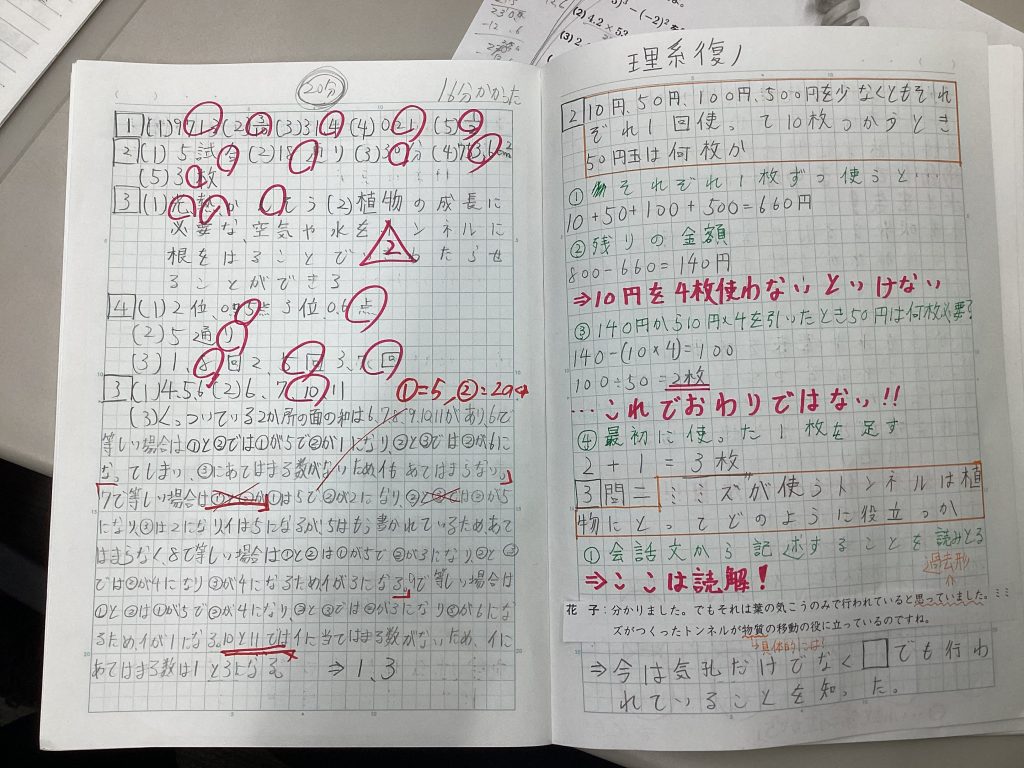 20分
16分かかった
(5)3 枚
3 (1) (2)植物の成長に
必要な、空気や水を
根をはることで
ることができる
4 (1)2位、 点 3位、0.6点
(2)5通り
(3)1、8回 2、 回 3、7回
3 (1)4.5.6 (2)6、7、10、11
①=5、②=2のとき
(3)くっついている2か所の面の和は6,7,8,9,10,11があり、6で
等しい場合は①と②では①が5で②が1になり、②と③では②が6に
なってしまい、③にあてはまる数がないためイもあてはまらない。
7で等しい場合は ①は5で②が2になり、②と ③が5
になり、③は2になりイは5になるが、5はもう書かれているため、あて
はまらなく、8で等しい場合は①と②は①が5で②が3になり、②と③
では②が4になり③が4になるためイが3になる。9で等しい場合は
①と②は①が5で②が4になり、②と③では②が3になり③が6にな
るため、イが1になる。10と11ではイに当てはまる数がないため、イに
あてはまる数は1と3になる ⇒1、3
理系復ノ
2 10円、50円、100円、500円を少なくともそれ
ぞれ1回使って10枚つかうとき
50円玉は何枚か
① それぞれ1枚ずつ使うと…
10+50+100+500=660円
②残りの金額
800-660=140円
⇒10円を4枚使わないといけない
③140円から10円×4を引いたとき50円は何枚必要?
140-(10×4)=100
100÷50=2枚
…これでおわりではない!!
④最初に使った1枚を足す
2+1=3枚
3 問二 ミミズが使うトンネルは植
物にとってどのように役立つか
①会話文から記述することを読みとる
⇒ここは読解!
過去形
花 子：分かりました。でもそれは葉の気こうのみで行われていると思っていました。ミミ
ズがつくったトンネルが物質の移動の役に立っているのですね。
→具体的には?
⇒今は気孔だけでなく□でも行わ
れていることを知った。